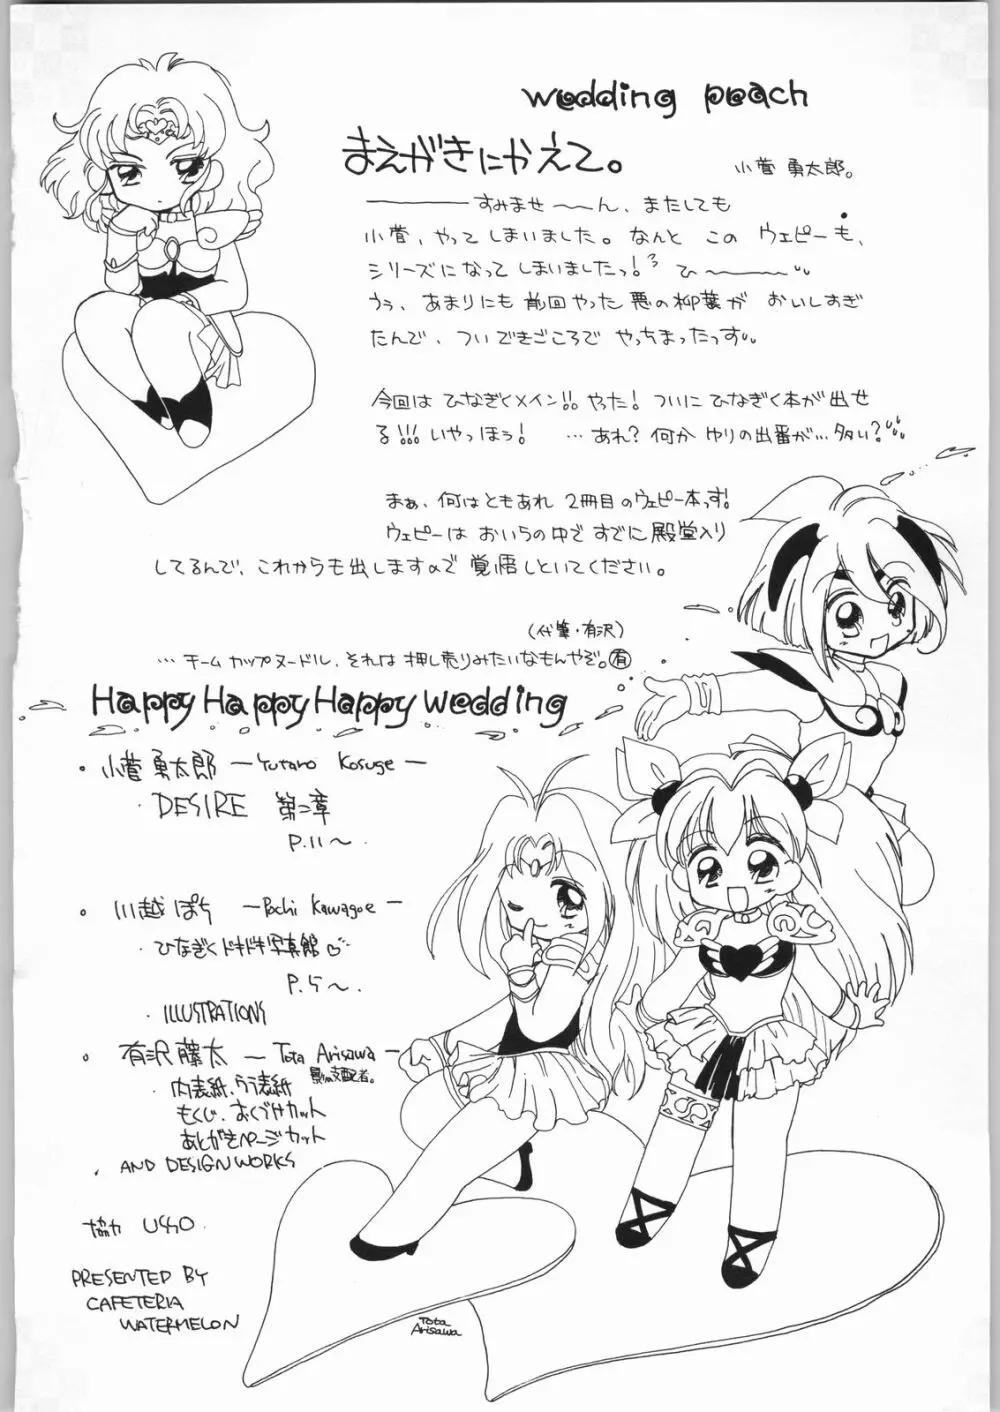 wedding peach
まえがきにかえて。
小菅 勇太郎。
────すみませ〜〜ん、またしても
小菅、やってしまいました。なんと このウェピーも、
シリーズになってしまいましたっ! ひ〜〜〜
うぅ、あまりにも前回やった悪の柳葉が おいしすぎ
たんで、ついできごころで やっちまったっす
今回は ひなぎくメイン!! やった! ついにひなぎく本が出せ
る!!! いやっほぅ! …あれ? 何か ゆりの出番が…多い?
まぁ、何はともあれ 2冊目のウェピー本っす!
ウェピーは おいらの中で すでに殿堂入り
してるんで、これからも出しますので 覚悟しといてください。
(代筆・有沢)
…チーム カップヌードル、それは 押し売りみたいなもんやぞ。有
Happy Happy Happy wedding
・小菅 勇太郎 ─Yutaro Kosuge─
・DESIRE 第二章
P.11〜.
・川越 ぽち ─Pochi Kawagoe─
・ひなぎくドキドキ写真館♡
P.5〜.
・ILLUSTRATIONS
・有沢 藤太 ─Tota Arisawa─
影の支配者。
・内表紙、うら表紙
もくじ、おくづけカット
あとがきページカット
・AND DESIGN WORKS
協力
PRESENTED BY
CAFETERIA
WATERMELON
Tota
Arisawa